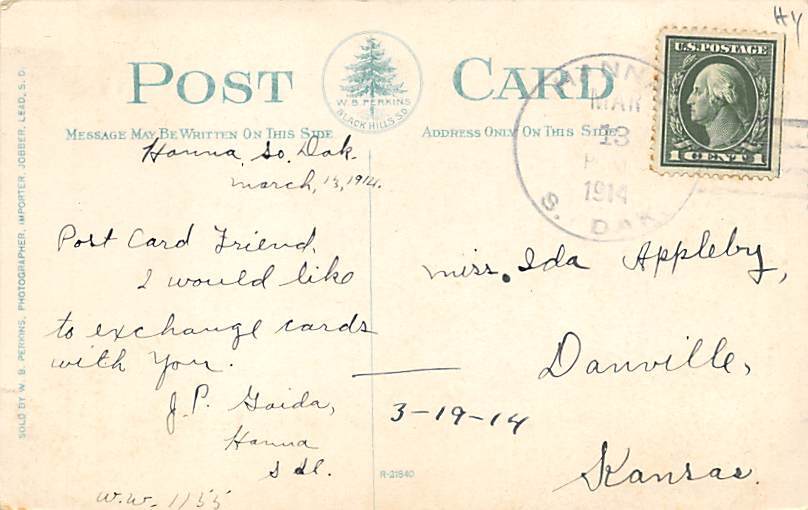 HY
POST CARD
W. B. PERKINS
BLACK HILLS S.D.
MESSAGE MAY BE WRITTEN ON THIS SIDE
ADDRESS ONLY ON THIS SIDE
U.S. POSTAGE
1 CENT 1
HANNA
MAR
13
1914
S. DAK.
Hanna, So. Dak.
March, 13, 1914.
Post Card Friend,
I would like
to exchange cards
with You.
J. P. Gaida,
Hanna
S D.
W.W. 1155
Miss. Ida Appleby,
Danville,
3-19-14
Kansas.
R-21840
SOLD BY W. B. PERKINS, PHOTOGRAPHER, IMPORTER, JOBBER, LEAD, S. D.